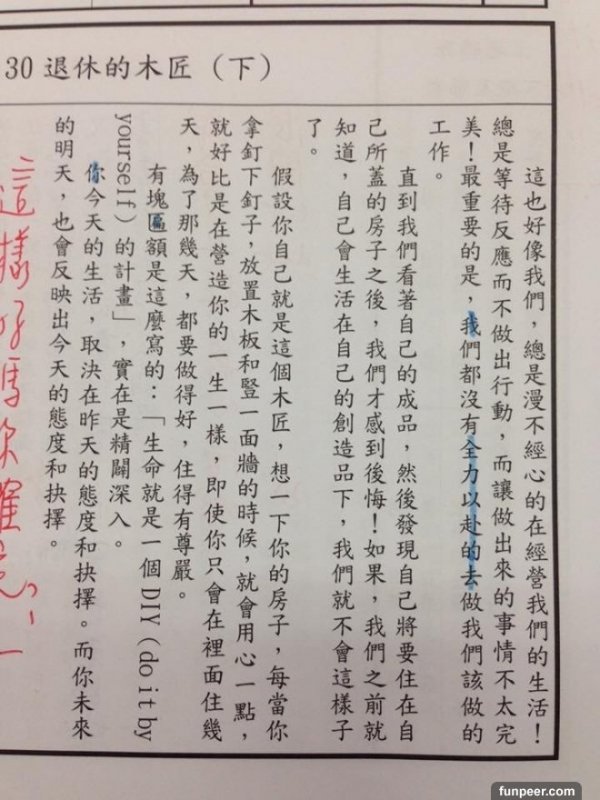 30 退休的木匠（下）
這也好像我們，總是漫不經心的在經營我們的生活！
總是等待反應而不做出行動，而讓做出來的事情不太完
美！最重要的是，我們都沒有全力以赴的去做我們該做的
工作。
直到我們看著自己的成品，然後發現自己將要住在自
己所蓋的房子之後，我們才感到後悔！如果，我們之前就
知道，自己會生活在自己的創造品下，我們就不會這樣子
了。
假設你自己就是這個木匠，想一下你的房子，每當你
拿釘下釘子，放置木板和豎一面牆的時候，就會用心一點，
就好比是在營造你的一生一樣，即使你只會在裡面住幾
天，為了那幾天，都要做得好，住得有尊嚴。
有塊匾額是這麼寫的：「生命就是一個 DIY（do it by
yourself）的計畫」，實在是精闢深入。
你今天的生活，取決在昨天的態度和抉擇。而你未來
的明天，也會反映出今天的態度和抉擇。
這樣好嗎
funpeer.com